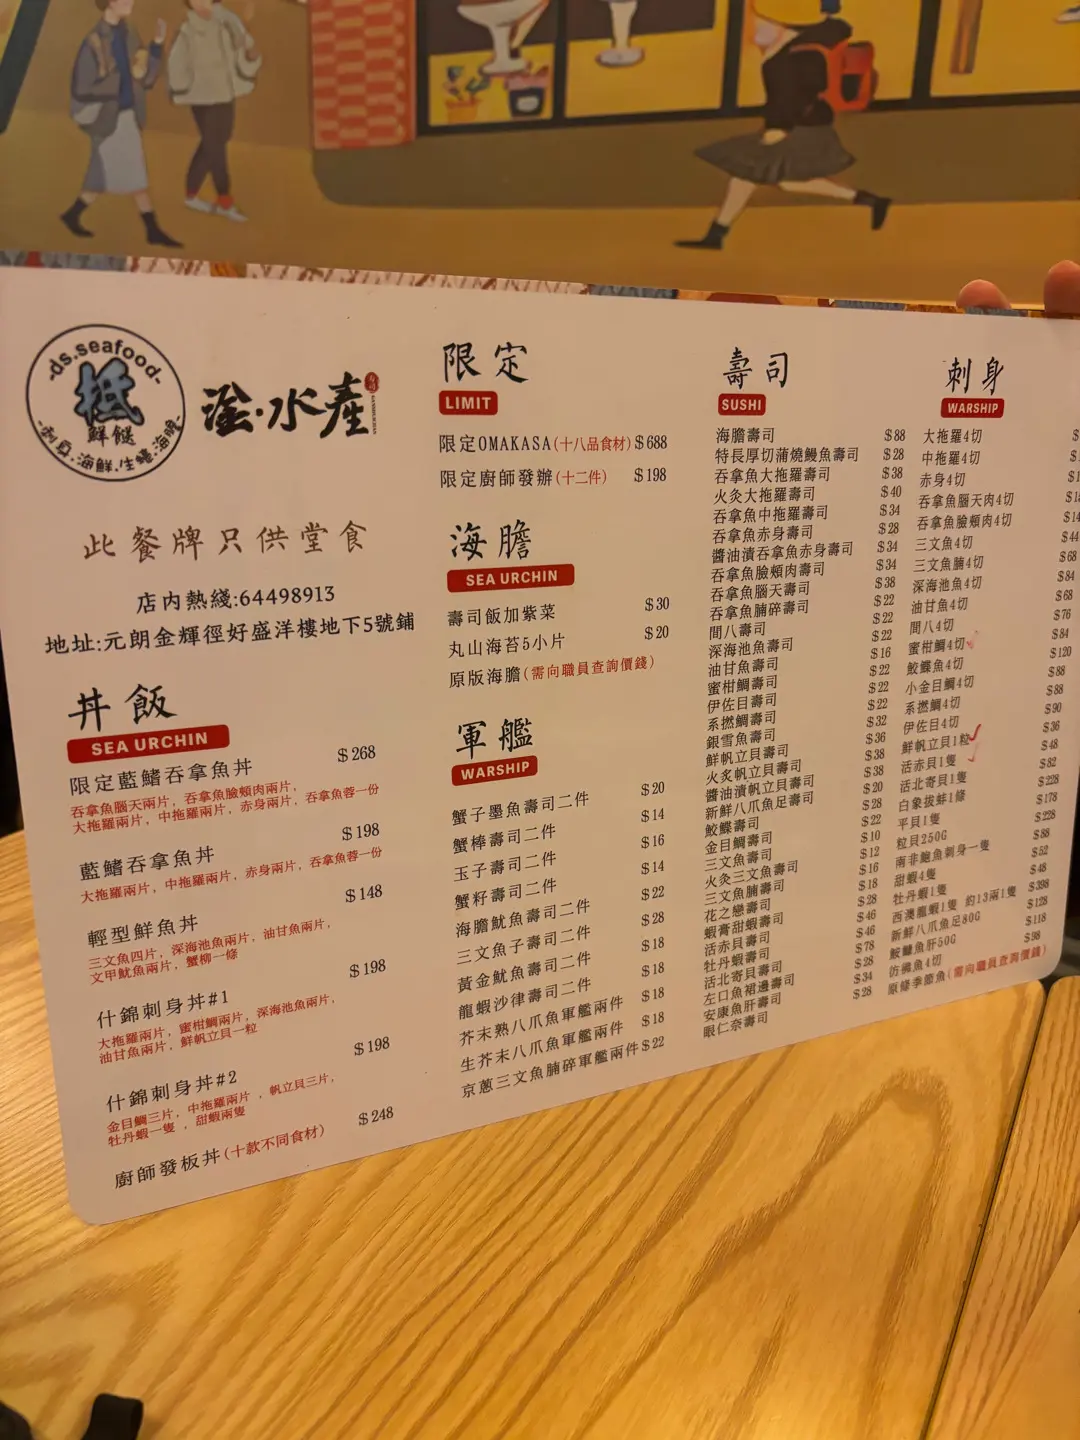 ds.seafood
抵
鮮餸
刺身.海鮮.生蠔.海膽
滏·水產
此餐牌只供堂食
店內熱綫:64498913
地址:元朗金輝徑好盛洋樓地下5號鋪
丼飯
SEA URCHIN
限定藍鰭吞拿魚丼 $268
吞拿魚腦天兩片，吞拿魚臉頰肉兩片，
大拖羅兩片，中拖羅兩片，赤身兩片，吞拿魚蓉一份
藍鰭吞拿魚丼 $198
大拖羅兩片，中拖羅兩片，赤身兩片，吞拿魚蓉一份
輕型鮮魚丼 $148
三文魚四片，深海池魚兩片，油甘魚兩片，
文甲魷魚兩片，蟹柳一條
什錦刺身丼#1 $198
大拖羅兩片，蜜柑鯛兩片，深海池魚兩片，
油甘魚兩片，鮮帆立貝一粒
什錦刺身丼#2 $198
金目鯛三片，中拖羅兩片，帆立貝三片，
牡丹蝦一隻，甜蝦兩隻
廚師發板丼(十款不同食材) $248
限定
LIMIT
限定OMAKASA(十八品食材) $688
限定廚師發辦(十二件) $198
海膽
SEA URCHIN
壽司飯加紫菜 $30
丸山海苔5小片 $20
原版海膽(需向職員查詢價錢)
軍艦
WARSHIP
蟹子墨魚壽司二件 $20
蟹棒壽司二件 $14
玉子壽司二件 $16
蟹籽壽司二件 $14
海膽魷魚壽司二件 $22
三文魚子壽司二件 $28
黃金魷魚壽司二件 $18
龍蝦沙律壽司二件 $18
芥末熟八爪魚軍艦兩件 $18
生芥末八爪魚軍艦兩件 $18
京蔥三文魚腩碎軍艦兩件 $22
壽司
SUSHI
海膽壽司 $88
特長厚切蒲燒鰻魚壽司 $28
吞拿魚大拖羅壽司 $38
火灸大拖羅壽司 $40
吞拿魚中拖羅壽司 $34
吞拿魚赤身壽司 $28
醬油漬吞拿魚赤身壽司 $34
吞拿魚臉頰肉壽司 $34
吞拿魚腦天壽司 $38
吞拿魚腩碎壽司 $22
間八壽司 $22
深海池魚壽司 $22
油甘魚壽司 $16
蜜柑鯛壽司 $22
伊佐目壽司 $22
系撚鯛壽司 $22
銀雪魚壽司 $32
鮮帆立貝壽司 $36
火炙帆立貝壽司 $38
醬油漬帆立貝壽司 $38
新鮮八爪魚足壽司 $20
鮫鰈壽司 $28
金目鯛壽司 $22
三文魚壽司 $10
火灸三文魚壽司 $12
三文魚腩壽司 $16
花之戀壽司 $18
蝦膏甜蝦壽司 $28
活赤貝壽司 $46
牡丹蝦壽司 $46
活北寄貝壽司 $78
左口魚裙邊壽司 $28
安康魚肝壽司 $34
眼仁奈壽司 $28
刺身
WARSHIP
大拖羅4切
中拖羅4切
赤身4切
吞拿魚腦天肉4切
吞拿魚臉頰肉4切
三文魚4切 $44
三文魚腩4切 $68
深海池魚4切 $84
油甘魚4切 $68
間八4切 $76
蜜柑鯛4切 $84
鮫鰈魚4切 $120
小金目鯛4切 $88
系撚鯛4切 $88
伊佐目4切 $90
鮮帆立貝1粒 $36
活赤貝1隻 $48
活北寄貝1隻 $82
白象拔蚌1條 $228
平貝1隻 $178
粒貝250G $228
南非鮑魚刺身一隻 $88
甜蝦4隻 $52
牡丹蝦1隻 $48
西澳龍蝦1隻 約13兩1隻 $398
新鮮八爪魚足80G $128
鮟鱇魚肝50G $118
彷彿魚4切 $98
原條季節魚(需向職員查詢價錢)